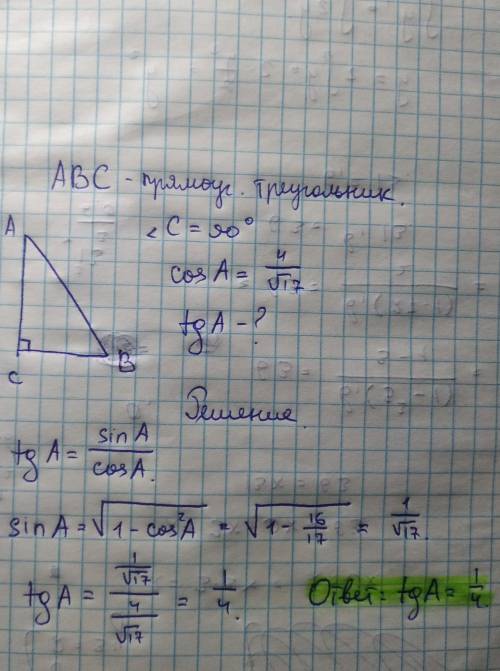 ABC - прямоуг. треугольник.
A
∠C = 90°
cos A = 4/√17
tg A - ?
B
C
Решение.
tg A = sin A / cos A.
sin A = √(1 - cos²A) = √(1 - 16/17) = 1/√17.
tg A = (1/√17) / (4/√17) = 1/4. Ответ: tg A = 1/4